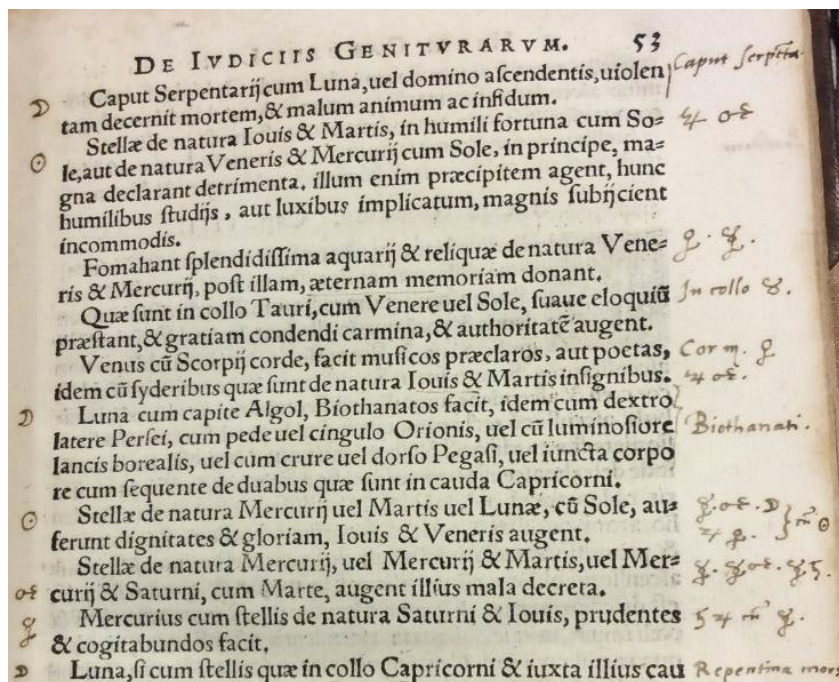 DE IVDICIIS GENITVRARVM. 53
Caput Serpentarij cum Luna, uel domino ascendentis, uiolen Caput serp
☽ tam decernit mortem, & malum animum ac infidum.
Stellæ de natura Iouis & Martis, in humili fortuna cum So= ♃ ♂
☉ le, aut de natura Veneris & Mercurij cum Sole, in principe, ma=
gna declarant detrimenta. illum enim præcipitem agent, hunc
humilibus studijs, aut luxibus implicatum, magnis subijcient
incommodis.
Fomahant splendidissima aquarij & reliquæ de natura Vene= ♀. ☿.
ris & Mercurij, post illam, æternam memoriam donant.
Quæ sunt in collo Tauri, cum Venere uel Sole, suaue eloquiũ In collo ♉.
præstant, & gratiam condendi carmina, & authoritatẽ augent.
Venus cũ Scorpij corde, facit musicos præclaros, aut poetas, Cor ♏. ♀
idem cũ syderibus quæ sunt de natura Iouis & Martis insignibus. ♃ ♂.
☽ Luna cum capite Algol, Biothanatos facit, idem cum dextro
latere Persei, cum pede uel cingulo Orionis, uel cũ luminosiore Biothanati.
lancis borealis, uel cum crure uel dorso Pegasi, uel iuncta corpo
re cum sequente de duabus quæ sunt in cauda Capricorni.
☉ Stellæ de natura Mercurij uel Martis uel Lunæ, cũ Sole, au= ☿. ♂. ☽
ferunt dignitates & gloriam, Iouis & Veneris augent. ♃ ♀. ☉
Stellæ de natura Mercurij, uel Mercurij & Martis, uel Mer= ☿. ☿ ♂. ☿ ♄.
♂ curij & Saturni, cum Marte, augent illius mala decreta.
☿ Mercurius cum stellis de natura Saturni & Iouis, prudentes ♄ ♃ ☿.
& cogitabundos facit.
☽ Luna, si cum stellis quæ in collo Capricorni & iuxta illius cau Repentina mors